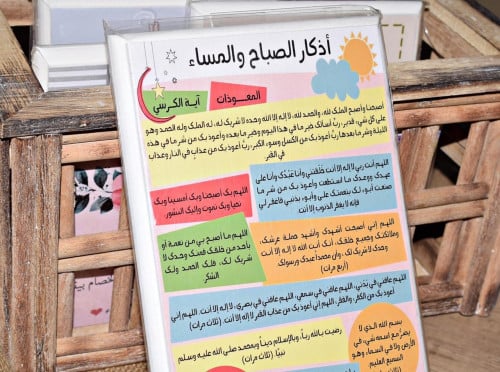 أذكار الصباح والمساء
المعوذات
آية الكرسي
أصبحنا وأصبح الملك لله، والحمد لله، لا إله إلا الله وحده لا شريك له، له الملك وله الحمد وهو
على كل شيء قدير، ربّ أسألك خير ما في هذا اليوم وخير ما بعده وأعوذ بك من شر ما في هذه
الليلة وشر ما بعدها ربّ أعوذ بك من الكسل وسوء الكبر، ربّ أعوذ بك من عذاب في النار وعذاب
في القبر
اللهم أنت ربي لا إله إلا أنت خلقتني وأنا عبدك وأنا على
عهدك ووعدك ما استطعت وأعوذ بك من شر ما
صنعت أبوء لك بنعمتك علي وأبوء بذنبي فاغفر لي
فإنه لا يغفر الذنوب إلا أنت
اللهم بك أصبحنا وبك أمسينا وبك
نحيا وبك نموت وإليك النشور
اللهم إني أصبحت أشهدك وأشهد حملة عرشك،
وملائكتك وجميع خلقك، أنك أنت الله لا إله إلا أنت
وحدك لا شريك لك، وأن محمدا عبدك ورسولك
(أربع مرات)
اللهم ما أصبح بي من نعمة أو
بأحد من خلقك فمنك وحدك لا
شريك لك، فلك الحمد ولك
الشكر
اللهم عافني في بدني، اللهم عافني في سمعي، اللهم عافني في بصري، لا إله إلا أنت، اللهم إني
أعوذ بك من الكفر، والفقر، اللهم إني أعوذ بك من عذاب القبر لا إله إلا أنت (ثلاث مرات)
رضيت بالله رباً، وبالإسلام ديناً وبمحمد صلى الله عليه وسلم
نبيّا. (ثلاث مرات)
بسم الله الذي لا
يضرّ مع اسمه شيء في
الأرض ولا في السماء وهو
السميع العليم
(ثلاث مرات)